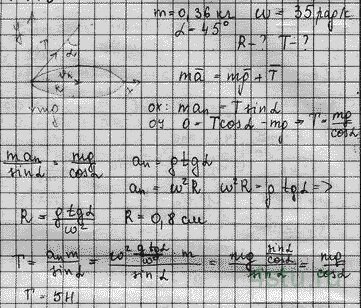 m = 0,36 кг ω = 35 рад/с
α = 45°
R - ? T - ?
y
T
α
R
x
mg
ma̅ = mg̅ + T̅
ox: maₙ = T sinα
oy: 0 = T cosα - mg => T = mg/cosα
maₙ/sinα = mg/cosα aₙ = g tgα
aₙ = ω²R ω²R = g tgα =>
R = g tgα/ω² R = 0,8 см
T = aₙm/sinα = ω² (g tgα/ω²) m/sinα = mg (sinα/cosα)/sinα = mg/cosα
T = 5Н